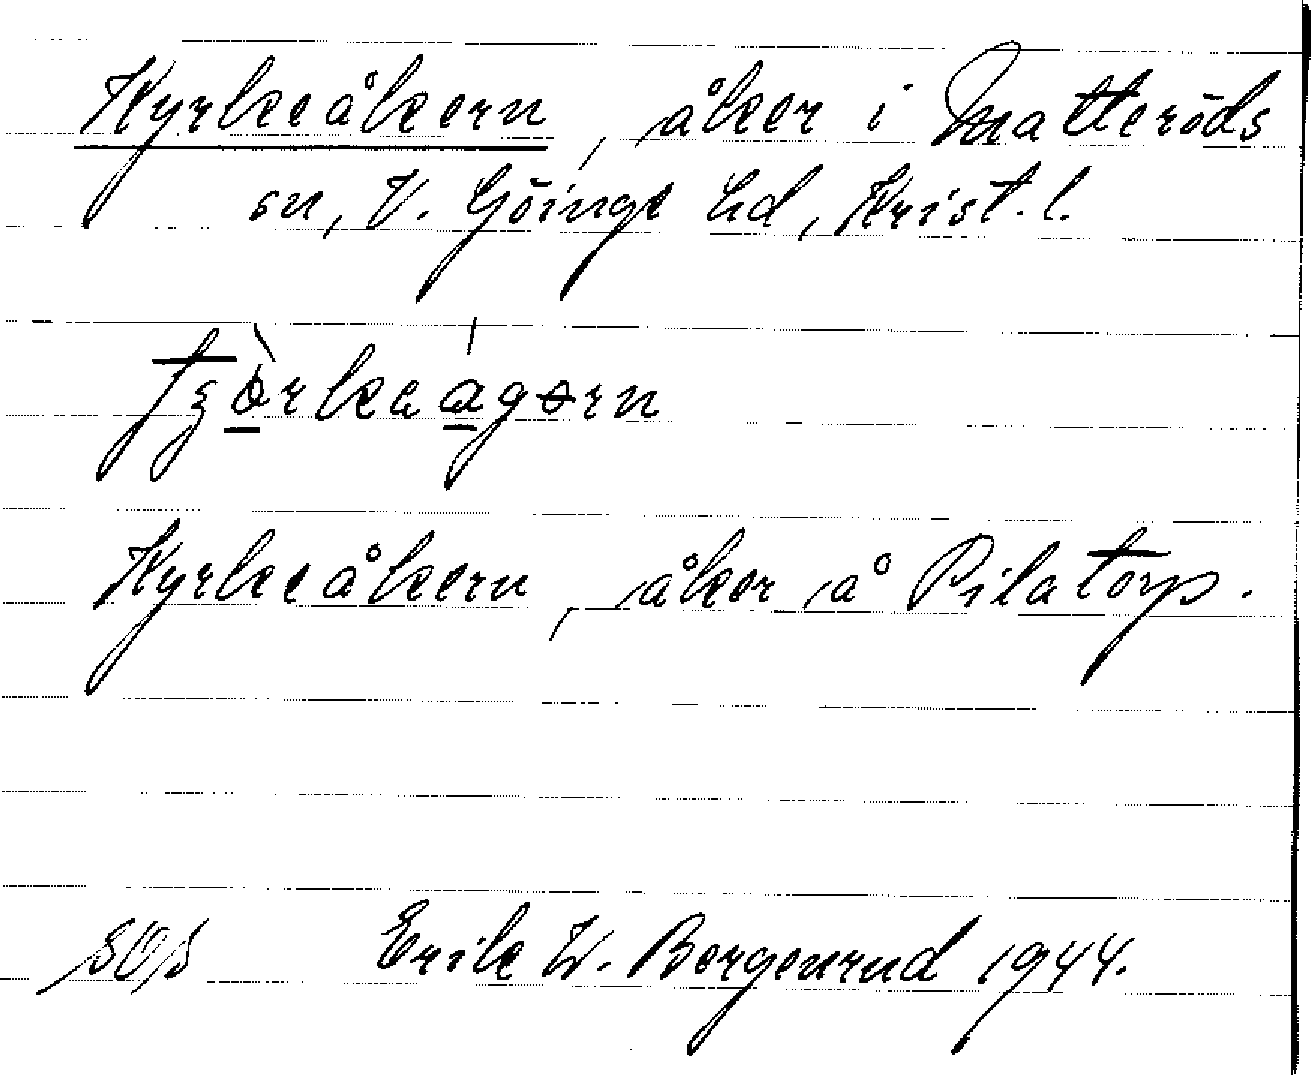 Kyrkeåkern, åker i Matteröds
sn, V. Göinge hd, Krist. l.
Kyrkeåkern, åker å Pilatorp.
Erik W. Bergenrud 1944.